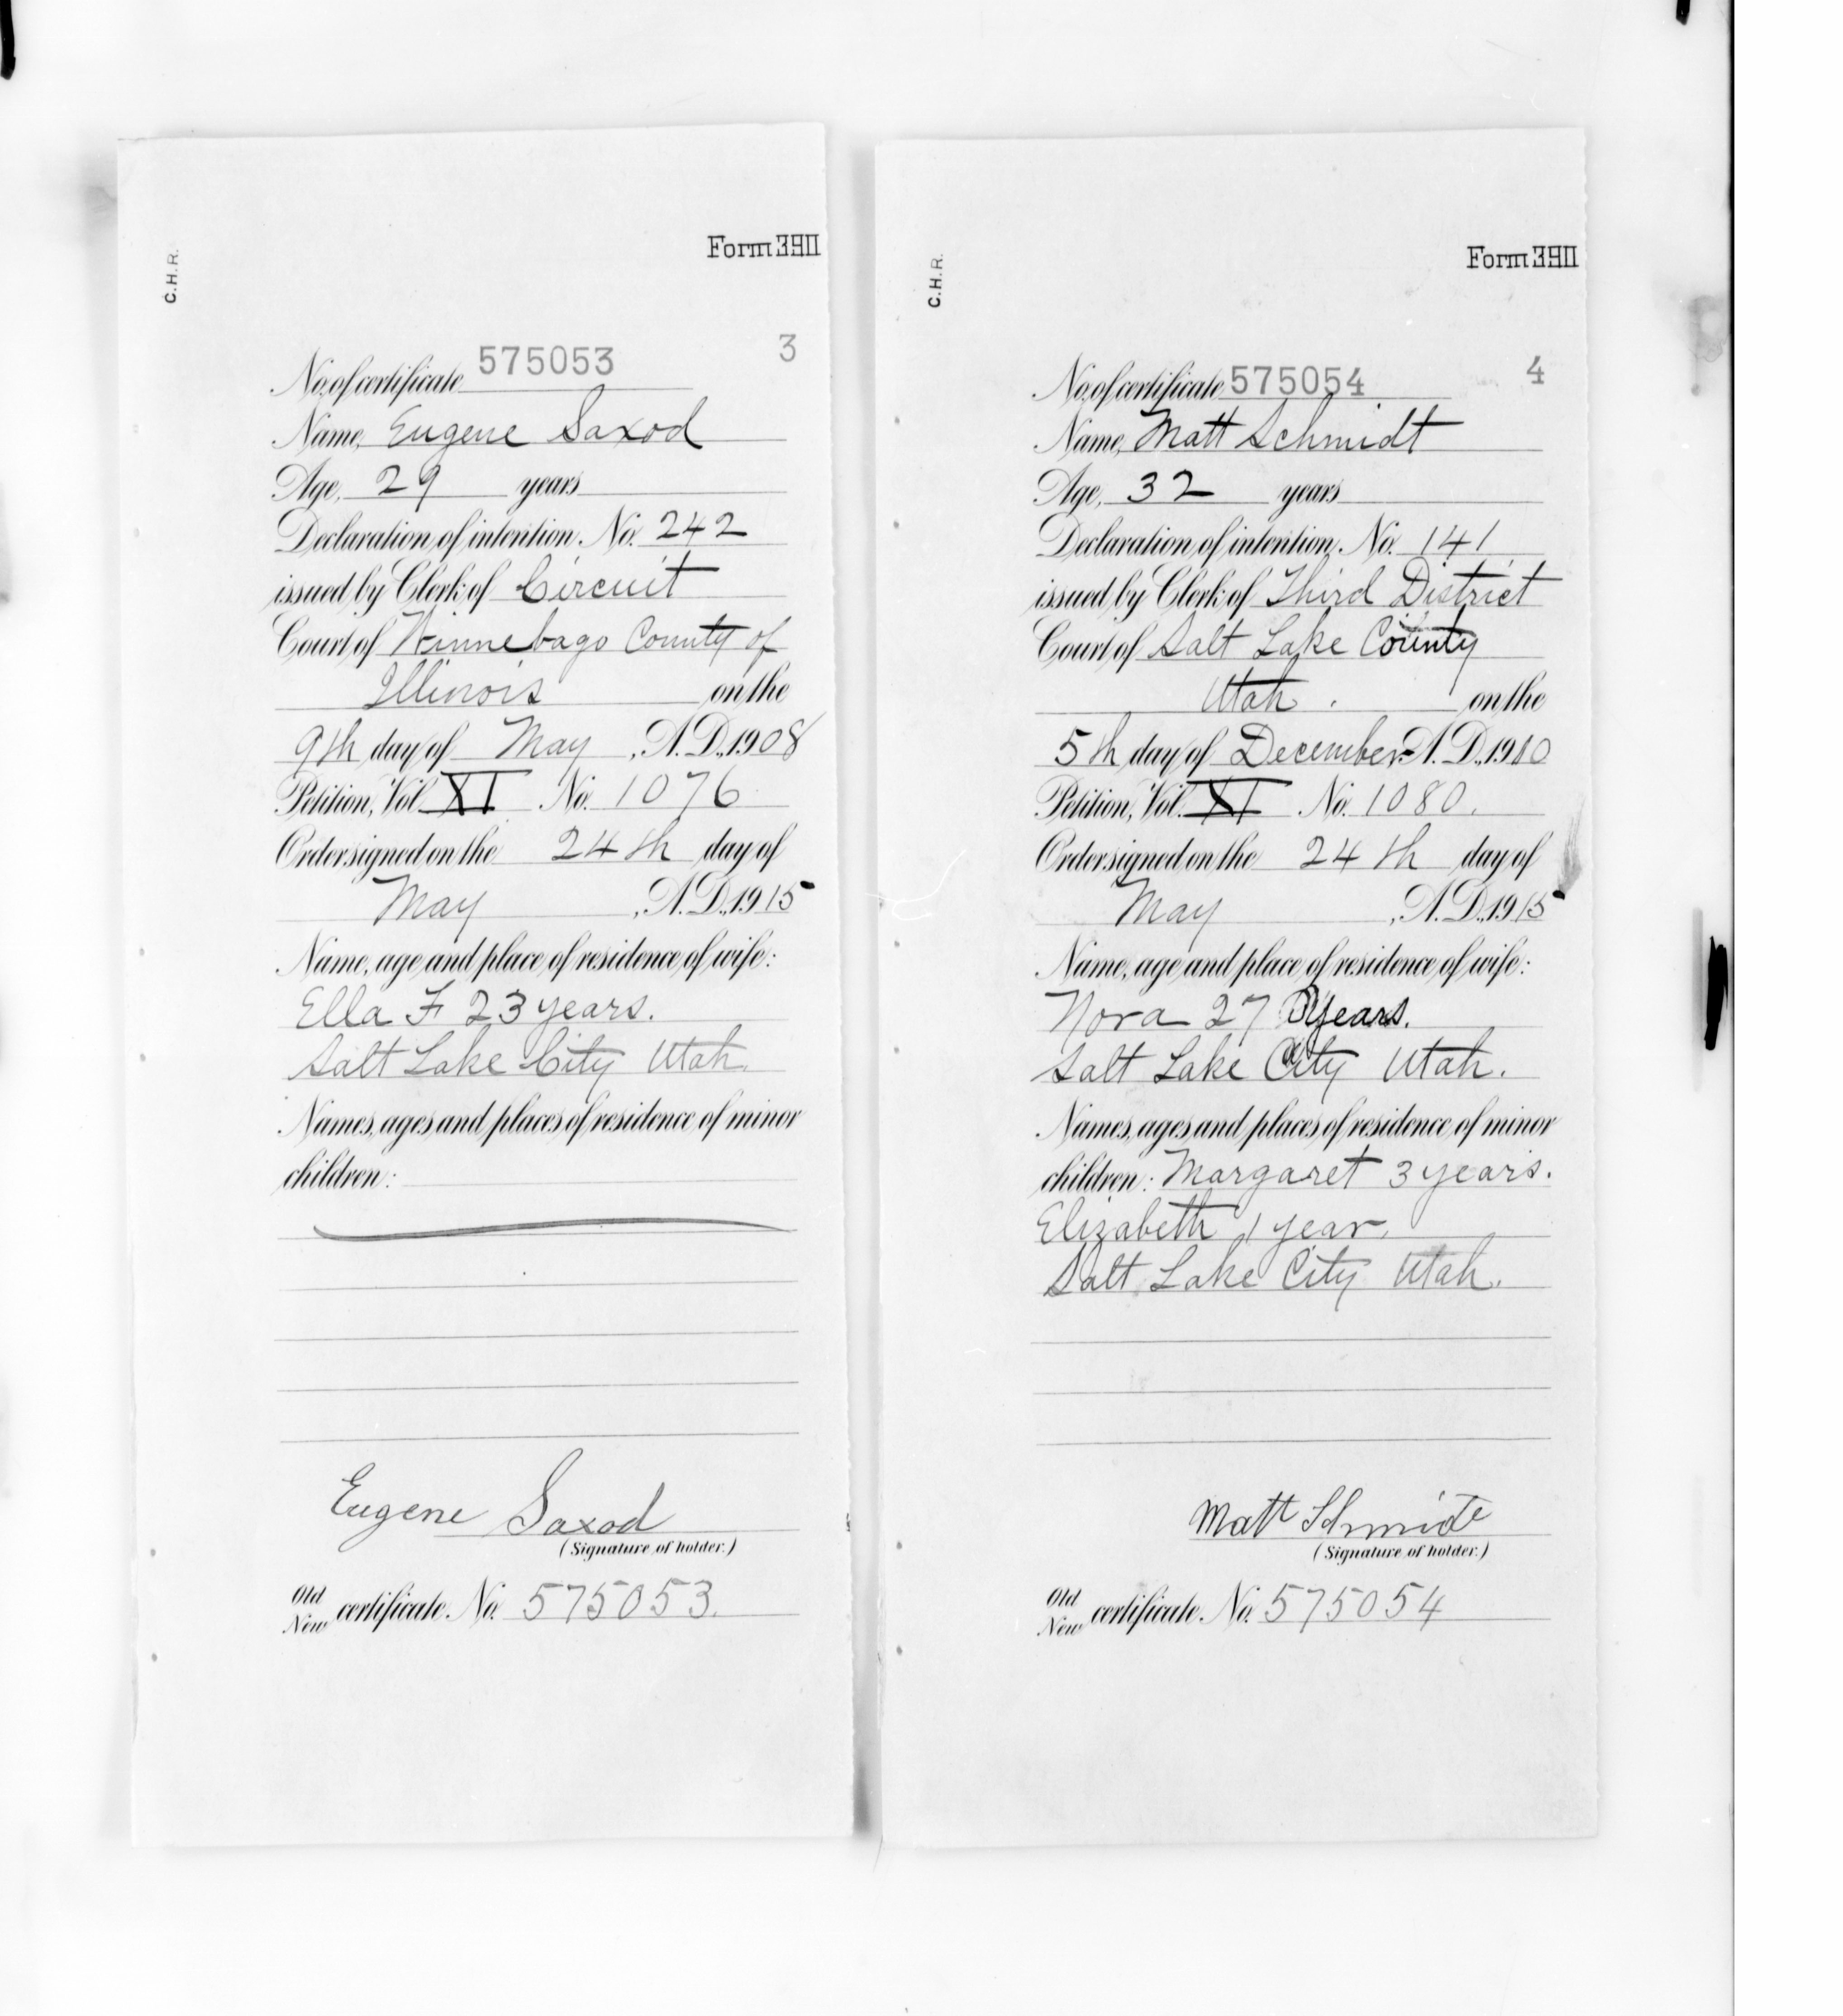 Form 3911
C.H.R.
3
No. of certificate 575053
Name, Eugene Saxod
Age, 29 years
Declaration of intention No. 242
issued by Clerk of Circuit
Court of Winnebago County of
Illinois on the
9th day of May, A.D. 1908
Petition, Vol. XI No. 1076
Order signed on the 24th day of
May, A.D. 1915
Name, age and place of residence of wife:
Ella F 23 years.
Salt Lake City Utah.
Names, ages and places of residence of minor
children:
Eugene Saxod
(Signature of holder.)
Old
New certificate No. 575053.
Form 3911
C.H.R.
4
No. of certificate 575054
Name, Matt Schmidt
Age, 32 years
Declaration of intention No. 141
issued by Clerk of Third District
Court of Salt Lake County
Utah. on the
5th day of December A.D. 1910
Petition, Vol. XI No. 1080.
Order signed on the 24th day of
May, A.D. 1915
Name, age and place of residence of wife:
Nora 27 years.
Salt Lake City Utah.
Names, ages and places of residence of minor
children: Margaret 3 years.
Elizabeth 1 year,
Salt Lake City Utah.
Matt Schmidt
(Signature of holder.)
Old
New certificate No. 575054